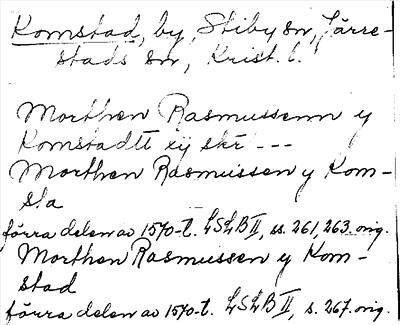 Komstad, by, Stiby sn, Järre-
stads hd, Krist. l.
Morthen Rasmussenn y
Komstadtt ey skr ---
Morthen Rasmussen y Kom-
sta
förra delen av 1570-t. LSLB II, ss. 261, 263. orig.
Morthen Rasmussen y Kom-
stad
förra delen av 1570-t. LSLB II, s. 267. orig.